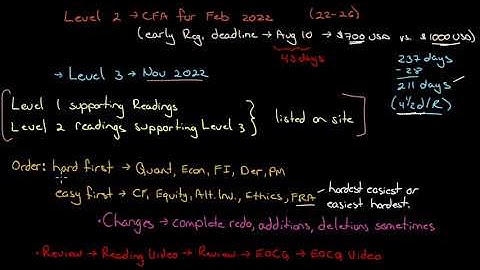 Level 2 → CFA for Feb 2022 (22-26)
(early Reg. deadline → Aug 10 → $700 USD vs. $1000 USD)
43 days
237 days
- 28
211 days
(4 1/2 d/R)
→ Level 3 → Nov 2022
Level 1 supporting Readings
Level 2 readings supporting Level 3
listed on site
Order: hard first → Quant, Econ, FI, Der, PM
easy first → CF, Equity, Alt. Inv., Ethics, FRA
hardest easiest or
easiest hardest.
• Changes → complete redo, additions, deletions sometimes
• Review → Reading Video → Review → EOCQ → EOCQ Video